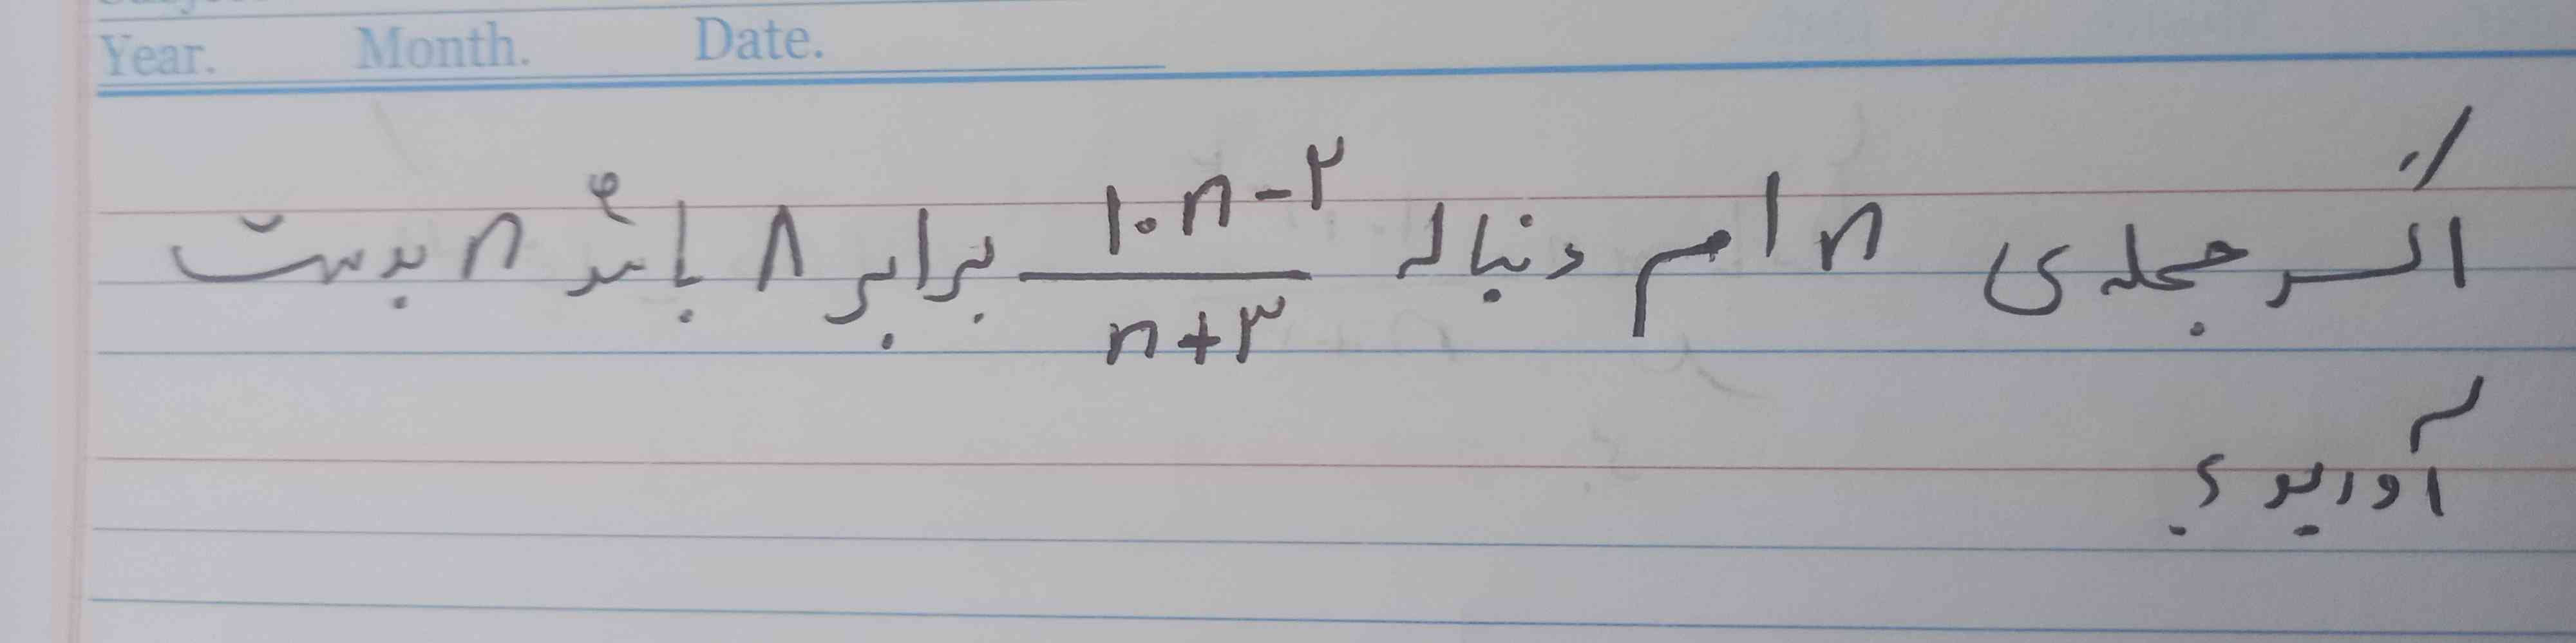 Year. Month. Date.
اگر جمله‌ی n ام دنباله ۱۰n-۲/n+۳ برابر ۸ باشد n بدست
آورید؟